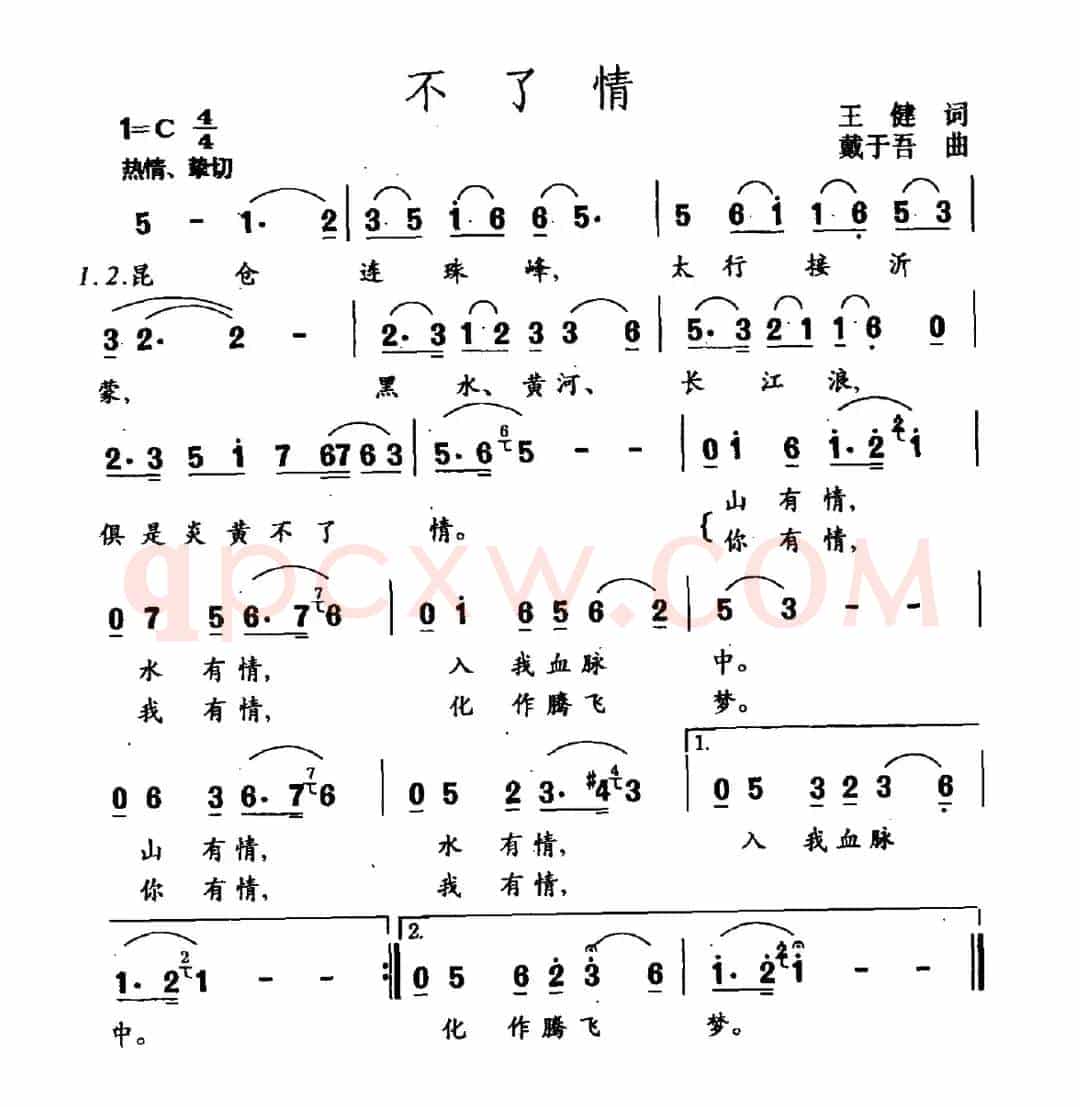 不了情
1=C 4/4
王健 词
戴于吾 曲
热情、挚切
5 - 1· 2 | 3 5 i 6 6 5· | 5 6 i 1 6 5 3 |
1.2.昆 仑 连 珠 峰, 太 行 接 沂
3 2· 2 - | 2·3 1 2 3 3 6 | 5·3 2 1 1 6 0 |
蒙, 黑 水、黄 河、 长 江 浪,
2·3 5 i 7 67 6 3 | 5·6 6 5 - - | 0 i 6 i·2 2 i |
俱 是 炎 黄 不 了 情。 山 有 情,
你 有 情,
qpcxw.COM
0 7 5 6·7 7 6 | 0 i 6 5 6 2 | 5 3 - - |
水 有 情, 入 我 血 脉 中。
我 有 情, 化 作 腾 飞 梦。
1.
0 6 3 6·7 7 6 | 0 5 2 3·#4 4 3 | 0 5 3 2 3 6 |
山 有 情, 水 有 情, 入 我 血 脉
你 有 情, 我 有 情,
2.
1·2 2 1 - - :| 0 5 6 2 3 6 | i·2 2 i - - ||
中。 化 作 腾 飞 梦。